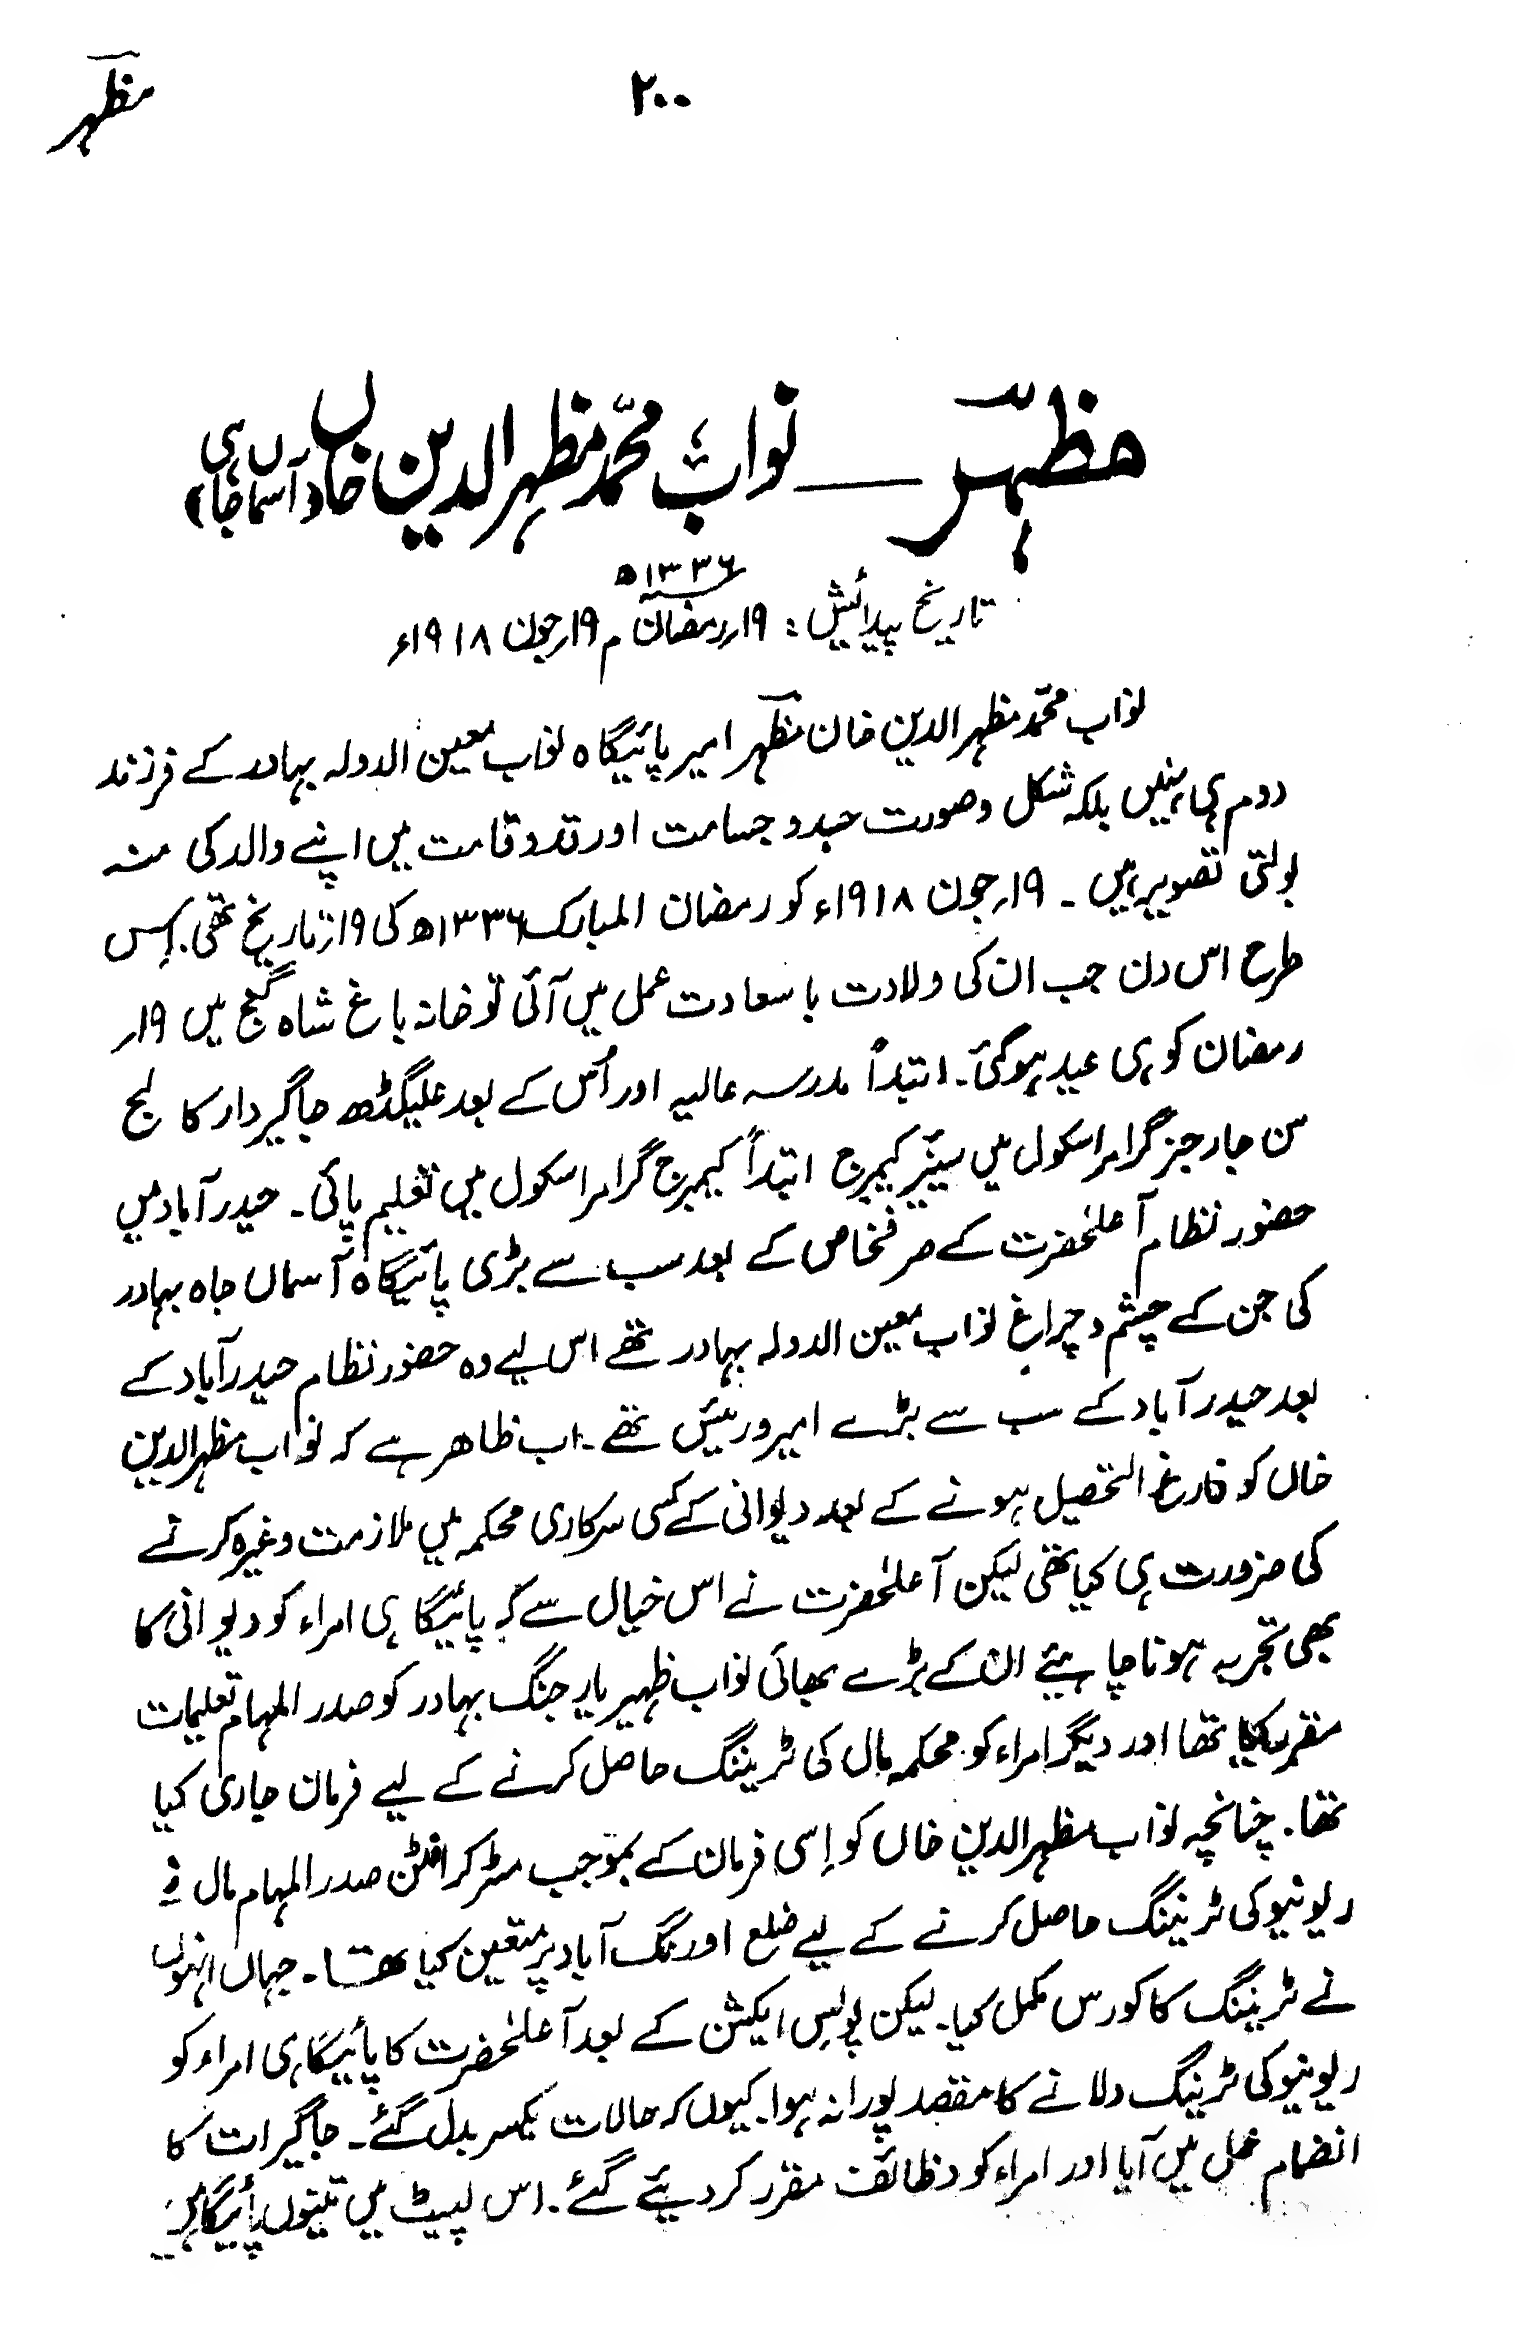 مظہر
۲۰۰
مظہر ـــــ نواب محمد مظہر الدین خاں (آسماں جاہی)
۱۳۳۶ھ
تاریخ پیدائش : ۱۹؍ رمضان م ۱۹؍ جون ۱۹۱۸ء
نواب محمد مظہر الدین خان مظہر امیر پائیگاہ نواب معین الدولہ بہادر کے فرزند
دوم ہی نہیں بلکہ شکل و صورت جسد و جسامت اور قد و قامت میں اپنے والد کی منہ
بولتی تصویر ہیں ۔ ۱۹؍ جون ۱۹۱۸ء کو رمضان المبارک ۱۳۳۶ھ کی ۱۹؍ تاریخ تھی۔ اِس
طرح اس دن جب ان کی ولادت با سعادت عمل میں آئی تو خانہ باغ شاہ گنج میں ۱۹؍
رمضان کو ہی عید ہو گئی۔ ابتداً مدرسہ عالیہ اور اُس کے بعد علیگڈھ جاگیردار کالج
سن جارجز گرامر اسکول میں سینیر کیمبرج ابتداً کیمبرج گرامر اسکول میں تعلیم پائی۔ حیدرآباد میں
حضور نظام آعلحٰضرت کے صرفخاص کے بعد سب سے بڑی پائیگاہ آسماں جاہ بہادر
کی جن کے چشم و چراغ نواب معین الدولہ بہادر تھے اس لیے وہ حضور نظام حیدرآباد کے
بعد حیدرآباد کے سب سے بڑے امیر و رئیس تھے ۔ اب ظاھر ہے کہ نواب مظہرالدین
خاں کو فارغ التحصیل ہونے کے بعد دیوانی کے کسی سرکاری محکمہ میں ملازمت وغیرہ کرنے
کی ضرورت ہی کیا تھی لیکن آعلحٰضرت نے اس خیال سے کہ پائیگاہی امراء کو دیوانی کا
بھی تجربہ ہونا چاہیئے ان کے بڑے بھائی نواب ظہیر یار جنگ بہادر کو صدر المہام تعلیمات
مقرر کیا تھا اور دیگر امراء کو محکمہ مال کی ٹریننگ حاصل کرنے کے لیے فرمان جاری کیا
تھا۔ چنانچہ نواب مظہرالدین خاں کو اِسی فرمان کے بموجب مسٹر کرافٹن صدر المہام مال نے
ریونیو کی ٹریننگ حاصل کرنے کے لیے ضلع اورنگ آباد پر متعین کیا تھا۔ جہاں انہوں
نے ٹریننگ کا کورس مکمل کیا۔ لیکن پولیس ایکشن کے بعد آعلحٰضرت کا پائیگاہی امراء کو
ریونیو کی ٹریننگ دلانے کا مقصد پورا نہ ہوا۔ کیوں کہ حالات یکسر بدل گئے۔ جاگیرات کا
انضمام عمل میں آیا اور امراء کو وظائف مقرر کر دیئے گئے۔ اس لپیٹ میں تینوں پائیگاہیں